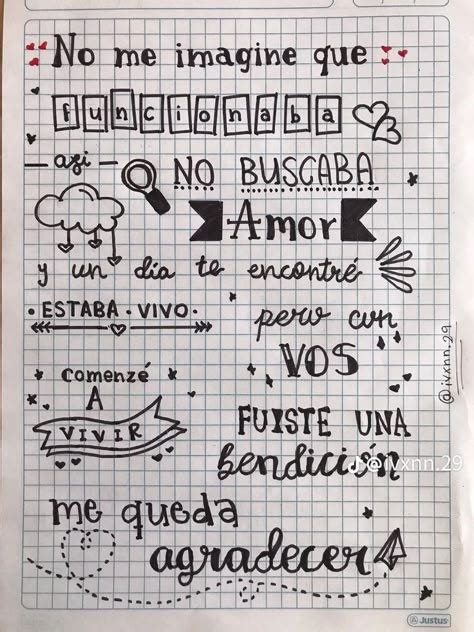 No me imagine que
funcionaba
asi
NO BUSCABA
Amor
y un día te encontré
· ESTABA · VIVO ·
pero con
VOS
comenzé
A
VIVIR
FUISTE UNA
bendición
me queda
agradecer
@ivxnn.29
@ivxnn.29
Justus